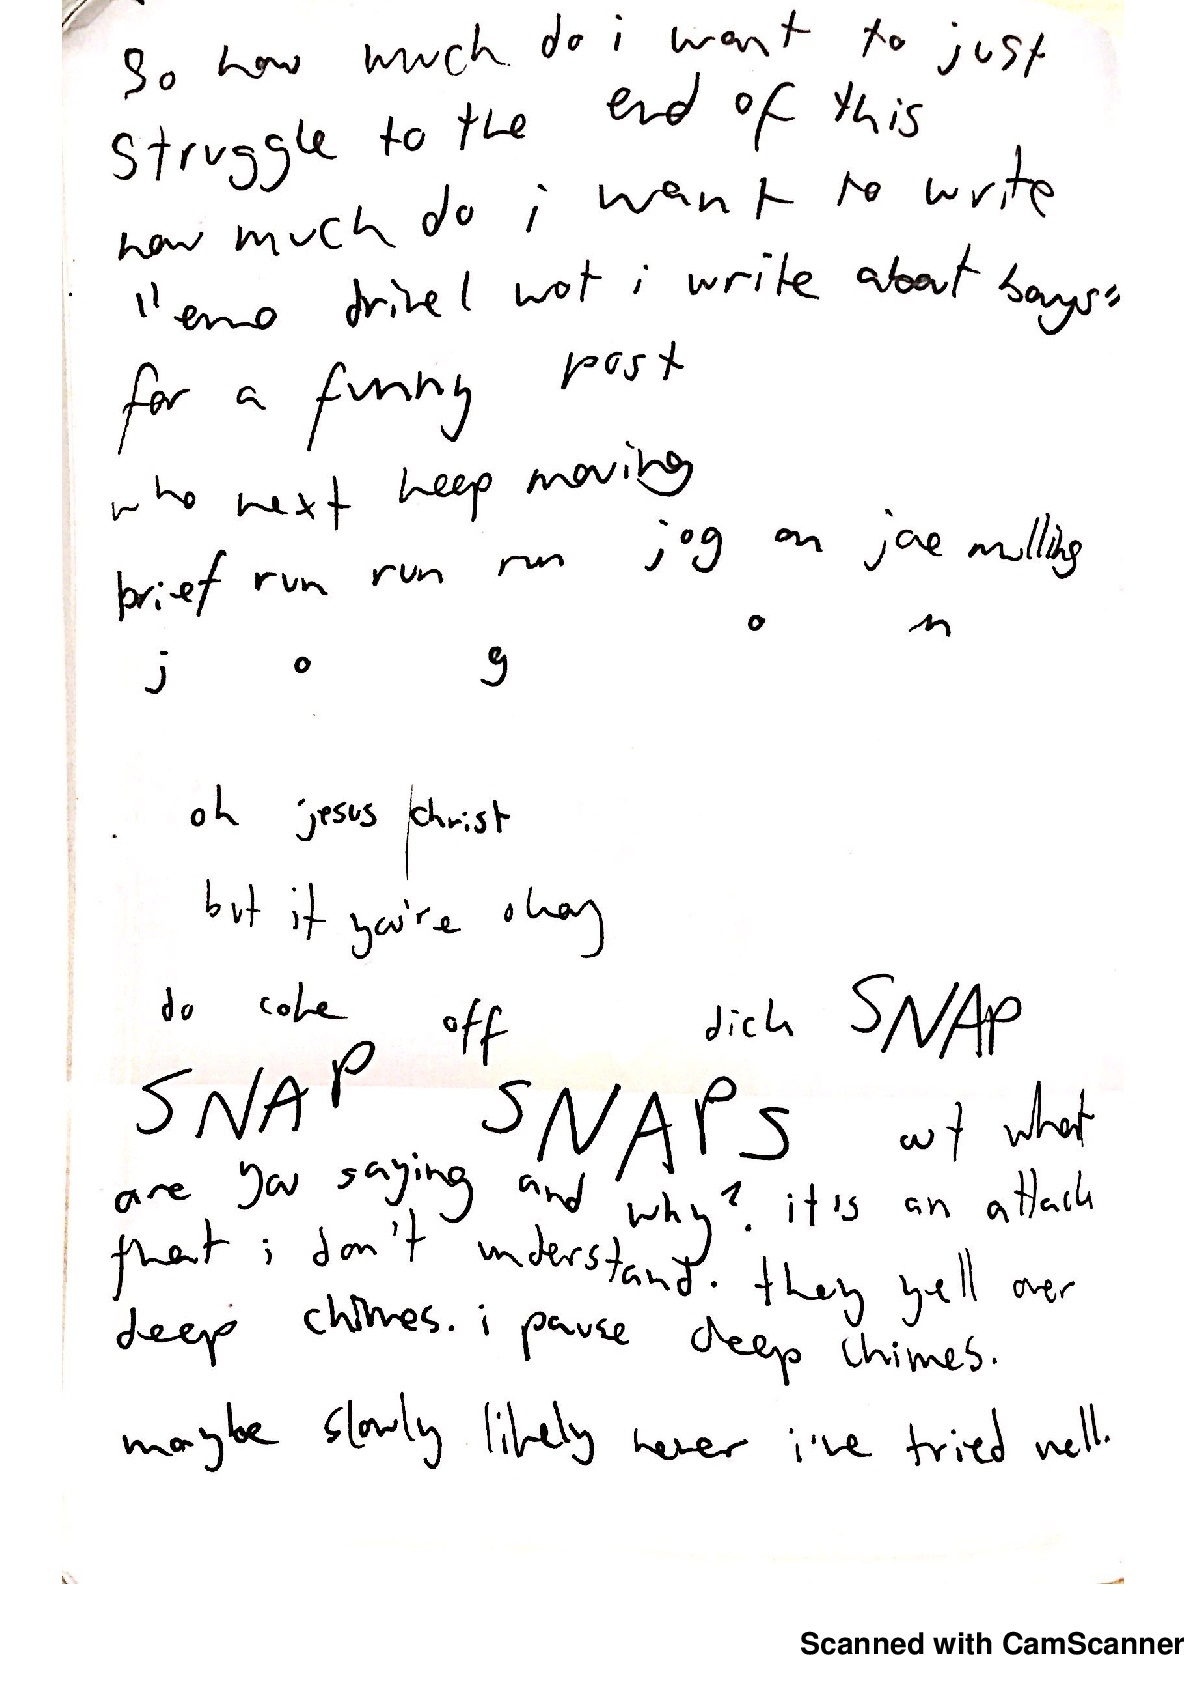 So how much do i want to just
struggle to the end of this
how much do i want to write
"emo drivel wot i write about boys"
for a funny post
who next keep moving
brief run run run jog on jae mulling
j o g o n
oh jesus christ
but if you're okay
do coke off dick SNAP
SNAP SNAPS wt what
are you saying and why? it's an attack
that i don't understand. they yell over
deep chimes. i pause deep chimes.
maybe slowly likely never i've tried well.
Scanned with CamScanner